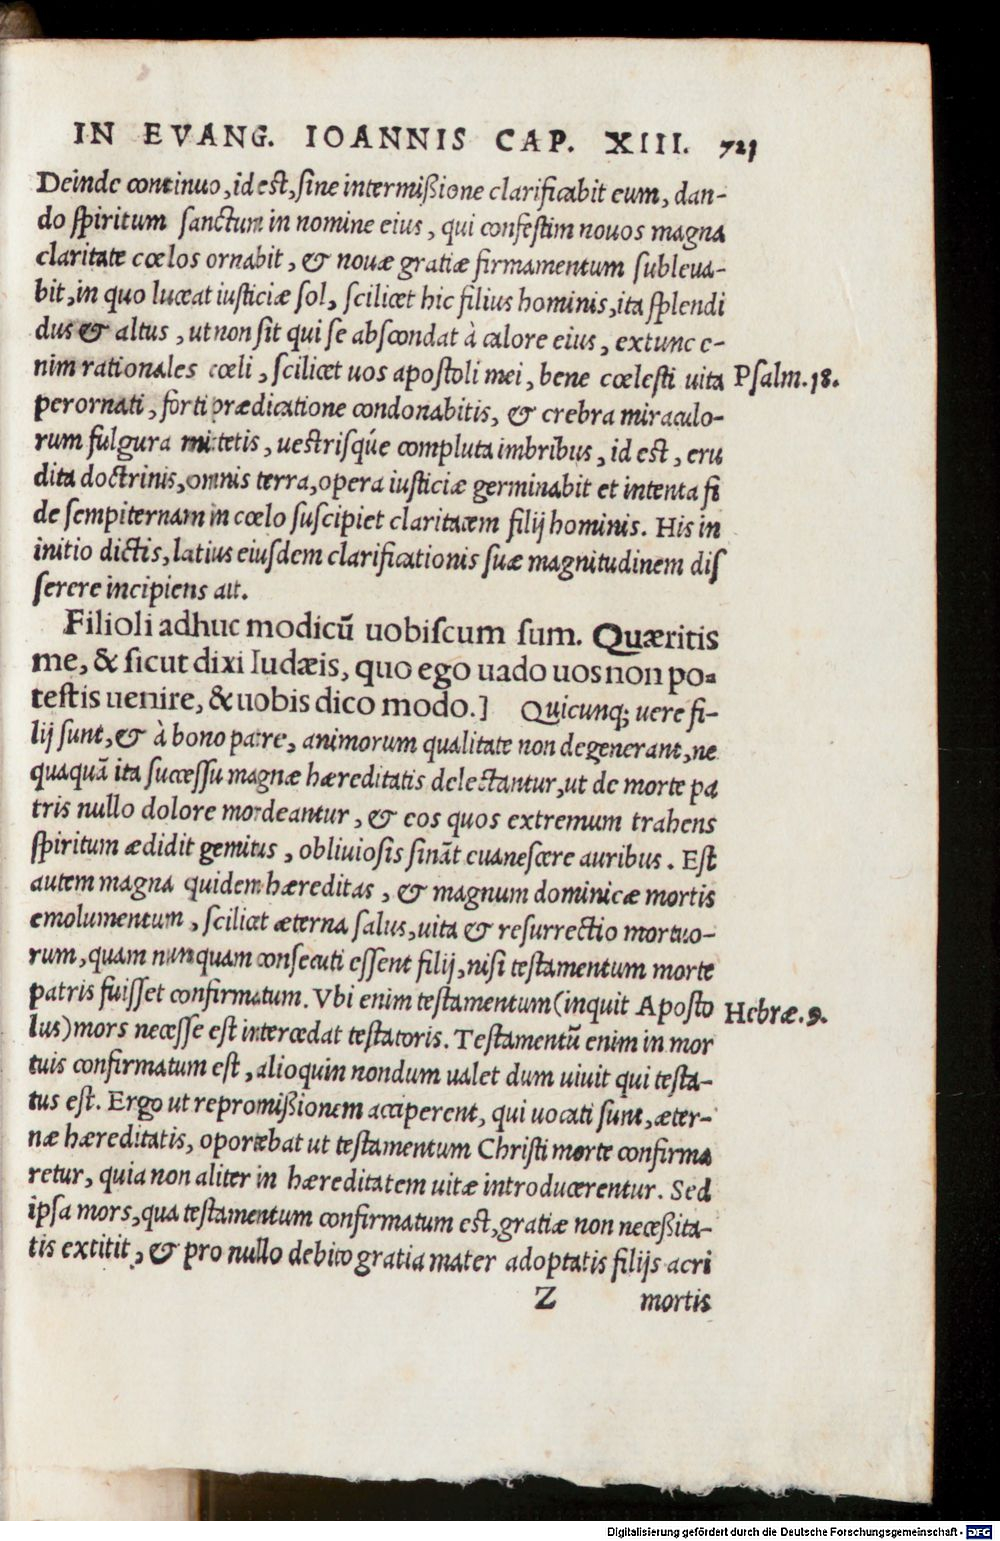 IN EVANG. IOANNIS CAP. XIII. 721
Deinde continuo, id est, sine intermißione clarificabit eum, dan-
do spiritum sanctum in nomine eius, qui confestim nouos magna
claritate cœlos ornabit, & nouæ gratiæ firmamentum subleua-
bit, in quo luceat iusticiæ sol, scilicet hic filius hominis, ita splendi
dus & altus, ut non sit qui se abscondat à calore eius, extunc e-
nim rationales cœli, scilicet uos apostoli mei, bene cœlesti uita Psalm. 18.
perornati, forti prædicatione condonabitis, & crebra miraculo-
rum fulgura mittetis, uestrisq́ue compluta imbribus, id est, eru
dita doctrinis, omnis terra, opera iusticiæ germinabit et intenta fi
de sempiternam in cœlo suscipiet claritatem filij hominis. His in
initio dictis, latius eiusdem clarificationis suæ magnitudinem dis
serere incipiens ait.
Filioli adhuc modicū uobiscum sum. Quæritis
me, & sicut dixi Iudæis, quo ego uado uos non po-
testis uenire, & uobis dico modo.] Quicunq; uere fi-
lij sunt, & à bono patre, animorum qualitate non degenerant, ne
quaquā ita successu magnæ hæreditatis delectantur, ut de morte pa
tris nullo dolore mordeantur, & eos quos extremum trahens
spiritum ædidit gemitus, obliuiosis sināt euanescere auribus. Est
autem magna quidem hæreditas, & magnum dominicæ mortis
emolumentum, scilicet æterna salus, uita & resurrectio mortuo-
rum, quam nunquam consecuti essent filij, nisi testamentum morte
patris fuisset confirmatum. Vbi enim testamentum (inquit Aposto Hebræ. 9.
lus) mors necesse est intercedat testatoris. Testamentū enim in mor
tuis confirmatum est, alioquin nondum ualet dum uiuit qui testa-
tus est. Ergo ut repromißionem acciperent, qui uocati sunt, æter-
næ hæreditatis, oportebat ut testamentum Christi morte confirma
retur, quia non aliter in hæreditatem uitæ introducerentur. Sed
ipsa mors, qua testamentum confirmatum est, gratiæ non neceßita-
tis extitit, & pro nullo debito gratia mater adoptatis filijs acri
Z mortis
Digitalisierung gefördert durch die Deutsche Forschungsgemeinschaft - DFG